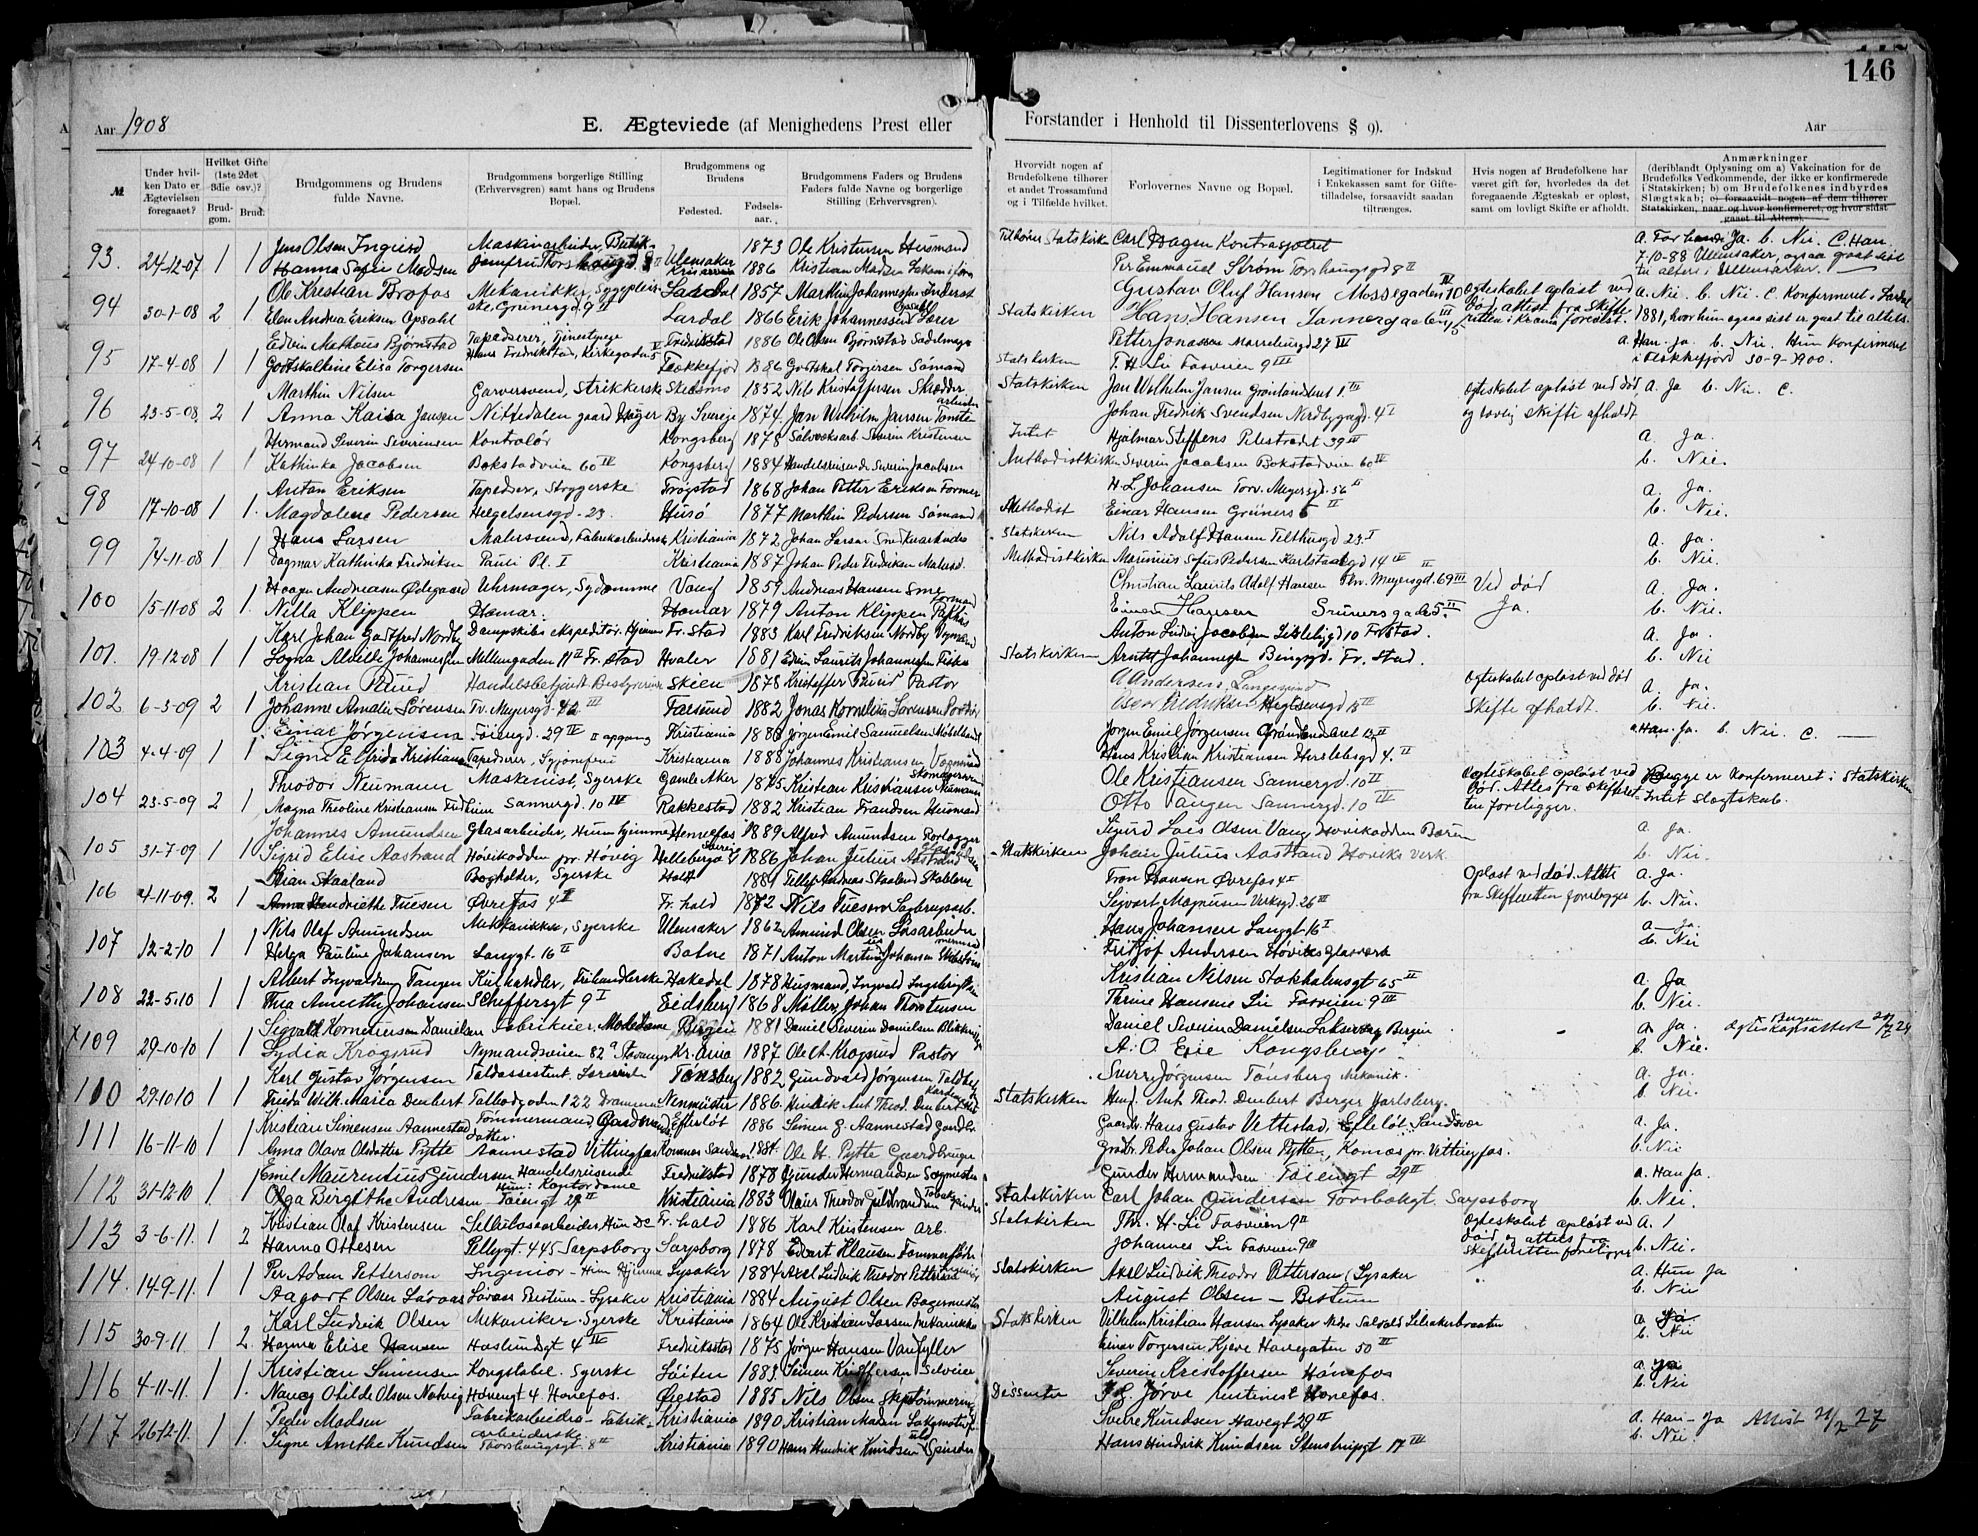 146
Aar 1908
E. Ægteviede (af Menighedens Prest eller Forstander i Henhold til Dissenterlovens § 9).
Aar
№
Under hvilken Dato er Ægtevielsen foregaaet?
Hvilket Gifte (1ste 2det 3die osv.)?
Brudgom.
Brud.
Brudgommens og Brudens fulde Navne.
Brudgommens borgerlige Stilling (Erhvervsgren) samt hans og Brudens Bopæl.
Brudgommens og Brudens
Fødested.
Fødselsaar.
Brudgommens Faders og Brudens Faders fulde Navne og borgerlige Stilling (Erhvervsgren).
Hvorvidt nogen af Brudefolkene tilhører et andet Trossamfund og i Tilfælde hvilket.
Forlovernes Navne og Bopæl.
Legitimationer for Indskud i Enkekassen samt for Giftetilladelse, forsaavidt saadan tiltrænges.
Hvis nogen af Brudefolkene har været gift før, hvorledes da det foregaaende Ægteskab er opløst, samt om lovligt Skifte er afholdt.
Anmærkninger (deriblandt Oplysning om a) Vakcination for de Brudefolks Vedkommende, der ikke er konfirmerede i Statskirken; b) om Brudefolkenes indbyrdes Slægtskab; c) forsaavidt nogen af dem tilhører Statskirken, naar og hvor konfirmeret, og hvor sidst gaaet til Alters).
93. 24-12-07 1 1 Jens Olsen Maskinarbeider, Ullensaker 1873 Ole Kristensen Tilhører Statskirke Carl Hagen
Hanna Sofie Madsen 1886 Kristian Madsen Per Emmanuel Strøm Torshaugsgd 8 II 7-10-88 Ullensaker, ogsaa gaat sist til alters i Ullensaker.
94 30-1-08 2 1 Ole Kristian Brofos Mekanikker, Lardal 1857 Marthin Johannessen Gustav Oluf Hansen Mossegaden 10 IV Ogteskabet opløst ved død, attest fra Skifteretten i Krania forevist. a. Nei. b. Nei. C. Konfirmeret i Lardal
Elen Andrea Eriksen Opsahl Grünersgd. 9 II Lardal 1866 Erik Johannessen Opsahl Statskirken Hans Hansen 1881, hvor hun ogsaa sist er gaat til alters.
95 17-4-08 1 1 Edvin Mathæus Bjørnstad Tapedserer, Tjenestepige Fredrikstad 1886 Ole Olsen Bjørnstad Sadelmager Petter Jonassen 27 III a. Han ja. b. Nei. Hun Konfirmeret
Gotskalkine Elisa Torgersen Hans Fredrikstad, Kirkegaden 5 Flekkefjord 1886 Gotskal Torgersen Sømand Statskirken T. H. Lie Fossveien 9 III i Flekkefjord 30-9-1900.
96 23-5-08 2 1 Marthin Nilsen Garversvend, Strikkerske Skedsmo 1852 Nils Kristoffersen Skrædder Statskirken Jan Wilhelm Jansen Grønlandsleret 1 III Ogteskabet opløst ved død, a. Ja b. Nei. C.
Anna Kaisa Jansen Nittedalen gaard By Sverige 1874 Jan Wilhelm Jansen Johan Fredrik Svendsen Nordbygd. 4 I og lovlig Skifte afholdt
97 24-10-08 1 1 Hermand Severin Severinsen Kontrolør Kongsberg 1878 Sølvverksarb. Severin Kristensen Intet Hjalmar Steffens Pilestrædet 39 III a. Ja.
Kathinka Jacobsen Bokstadveien 60 IV Kongsberg 1884 Handelsreisende Severin Jacobsen Methodistkirken Severin Jacobsen Bokstadveien 60 IV b. Nei.
98 17-10-08 1 1. Anton Eriksen Tapedser, Strygerske Trøgstad 1868 Johan Petter Eriksen Former H. L. Johansen Torv. Meyersgd. 56 II a. Ja.
Magdalene Pedersen Helgesensgd. 23. Husø 1877 Marthin Pedersen Sømand Methodist Einar Hansen Grüners 5 II b. Nei.
99 14-11-08 1 1 Hans Larsen Malersvend, Fabrikarbeiderske Kristiania 1872 Johan Larsen Statskirken Nils Adolf Hansen Tofthusgd 23. I a. Ja.
Dagmar Kathinka Fredriksen Pauli Pl. I Kristiania 1887 Johan Peder Fredriksen Malersv. Methodistkirken Marinius Sofus Pedersen Karlstadgd 14 IV b. Nei.
100 15-11-08 2 1. Haagen Andreasen Ødegaard Uhrmager, Sydamme Vang 1859 Andreas Hansen Christian Laurits Adolf Hansen Thv. Meyersgd. 69 III Ved død a. Ja.
Nilla Klippen Hamar. Hamar 1879 Anton Klippen Einar Hansen Grünersgade 5. II Ja. b. Nei.
101. 19-12-08 1 1. Karl Johan Gotfred Nordby Dampskibs ekspeditør, Hjemme Fr. Stad 1883 Karl Fredriksen Nordby Anton Ludvig Jacobsen Lislebygd 10 Fr. stad. a. Ja.
Mellemgaden 11 II Fr. Stad Hvaler 1881 Edvin Laurits Johannessen Fisker Statskirken Arnt Johannessen Bingsgd. Fr. Stad. b. Nei
102 6-3-09 2 1 Kristian Ruud Handelsbetjent Bestyrerinde Skien 1878 Kristoffer Ruud Pastor A Andersen, Langesund Ogteskabet opløst ved død a. Ja.
Johanne Amalie Sørensen Tv. Meyersgd. 42 III Farsund 1882 Jonas Kornelius Sørensen Oscar Fredriksen Helgesensgd 15 II Skifte afholdt. b. Nei.
103 4-4-09 1 1 Einar Jørgensen Tøiengd. 29 IV II opgang Kristiania 1888 Jørgen Emil Samuelsen Møbelhandl Jørgen Emil Jørgensen Grønlandsleret 13 II a. Han. Ja. b. Nei. C. —
Signe Elfrida Kristiansen Tapedserer, Syjomfru Kristiania 1888 Johannes Kristiansen Vognmand Hans Kristian Kristiansen Herslebsgd 4. II
104 23-5-09 2 1 Theodor Neumann Maskinist, Syerske Gamle Aker 1875 Kristian Kristiansen Neumann Ole Kristiansen Sannergd. 10 II Ogteskabet opløst ved død. Attest fra Skifteretten foreligger. Begge er Konfirmeret i Statskirken
Magna Theoline Kristiansen Sannergd. 10 IV Rakkestad 1882 Kristian Frandsen Husmand Otto Tangen Sannergd. 10 IV Intet Slægtskab.
105 31-7-09 1 1 Johannes Amundsen Glasarbeider, Hun hjemme Hønefos 1889 Alfred Amundsen Sigurd Lois Olsen Vang Høvikodden Bærum a. Ja.
Sigrid Elise Aastrand Høvikodden pr. Høvig Helleberga Sverige 1886 Johan Julius Aastrand Statskirken Johan Julius Aastrand Høviks Verk b. Nei.
106 4-11-09. 2 1 Stian Skaaland Bogholder, Syerske Holt 1881 Tellef Andreas Skaaland Tron Hansen Øvrefos 4 II Opløst ved død. Attest a. Ja.
Anna Hendriethe Tuesen Øvrefos 4 II Fr. hald 1872 Nils Tuesen Sagbrugsarb. Sigvart Magnussen Verksgd. 26 III fra Skifteretten foreligger b. Nei.
107 12-2-10 1 1 Nils Olaf Amundsen Mekkanikker, Syerske Ullensaker 1862 Amund Olsen Løsarbeider Hans Johansen Langgt. 16 I a — Ja
Helga Pauline Johansen Langgt. 16 II Botne 1871 Anton Martin Johansen Fritjof Andersen Høviks Glasverk b. Nei
108 22-5-10 1 1 Albert Ingvaldsen Tangen Kulhandler, Frihandlerske Hakadal 1878 Husmand, Ingvald Ingebrigtsen Kristian Nilsen Stokholmsgt 65 II a. Ja
Thea Anethe Johansen Scheffersgt 9 I Eidsberg 1868 Møller, Johan Thorstensen Thrine Hansine Lie Fossveien 9 III b. Nei.
×109 29-10-10 1 1 Sigvald Korneliusen Danielsen Fabrikeier, Modedame Bergen 1881 Daniel Severin Danielsen Daniel Severin Danielsen Laksevaag Bergen a. Ja. Bergen Ogteskapsattest 24
Lydia Krogsrud Nymandsveien 82 a Stavanger Kr. ania 1887 Ole A. Krogsrud Pastor A. O. Kongsberg b. Nei.
110 29-10-10 1 1 Karl Gustav Jørgensen Toldassestent. Lærerinde Tønsberg 1882 Gundvald Jørgensen Sverre Jørgensen Tønsberg Mekanik. a. Ja.
Frida Wilh. Maria Deubert Tolbodgaden 122 Drammen Neumünster 1886. Hindrik Ant Theod. Deubert Statskirken Hind. Ant. Theod. Deubert Berger Jarlsberg. b. Nei.
111 16-11-10 1 1 Kristian Simensen Aannestad Tømmermand, Gaardmandsdatter. Efterløt 1886 Simen G. Aannestad Gardbr. Gaardbr. Hans Gustav Vettestad, Efteløt Sandsvær a. Ja.
Anna Olava Olsdatter Pytte Aannestad Vittingfos Komnes Sandsv. 1884. Ole H. Pytte Gaardbruger Grdbr. Peder Johan Olsen Pytte, Komnes pr. Vittingfos. b. Nei
112 31-12-10 1 1 Emil Maurentius Gundersen Handelsreisende Fredrikstad 1878 Gunder Hermandsen Sagmester Gunder Hermandsen Tøiengt 29 II a. Han Ja.
Olga Bergitha Andresen Hun: Kontordame Tøiengt 29 II Kristiania 1883 Olaus Theodor Guldbrandsen Statskirken Carl Johan Gundersen Torsbækgt. Sarpsborg b. Nei.
113 3-6-11. 1 2 Kristian Olaf Kristensen Sellulosearbeider Hun Do Fr. hald 1886 Karl Kristensen arb. Statskirken Thr. H. Lie Fossveien 9 II Ogteskabet opløst ved død og attest fra Skifteretten foreligger a. 1
Hanna Ottesen Pellygt. 445 Sarpsborg Sarpsborg 1878 Edvart Klausen Tømmerfløder Johannes Lie Fossveien 9 III b. Nei.
114. 14-9-11. 1 1 Per Adam Pettersson Ingeniør - Hun Hjemme Lysaker 1884 Axel Ludvik Theodor Petterson Ingeniør Statskirken Axel Ludvik Theodor Pettersan Lysaker a. Hun Ja
Aagot Olsen Løvaas Løvaas Bestum - Lysaker Kristiania 1884 August Olsen Bagermester August Olsen — Bestum b. Nei
115 30-9-11 1 2. Karl Ludvik Olsen Mekaniker - Syerske Kristiania 1864 Ole Kristian Larsen Mekanikker Statskirken Vilhelm Kristian Hansen Lysaker a. Ja
Hanna Elise Hansen Haslundsgt 4 IV Fredriksstad 1875 Jørgen Hansen VanFyller Einar Torgersen Kjeve Havegaten 50 III b. Nei
116 4-11-11. 1 1. Kristian Simensen Kongstabel. Syerske Løiten 1883 Simen Kristoffersen Severin Kristoffersen Hønefos a. Ja
Nancy Otilde Olsen Hovengt 4. Hønefos. Øiestad 1885 Nils Olsen Skipstømmermand Dissenter Jørve Rentinest Hønefos. b. Nei
117 26-12-11. 1 1 Peder Madsen Fabrikarbeider - Fabrikarbeiderske Kristiania 1890 Kristian Madsen Sverre Knudsen Havegt 29 II a. Han - Ja Attest 21/7 27
Signe Anethe Knudsen Thorshaugsgt. 8 II Kristiania 1890 Hans Hendrik Knudsen Uld Spinder Hans Hindrik Knudsen Stenstrupgt 17 III b. Nei.